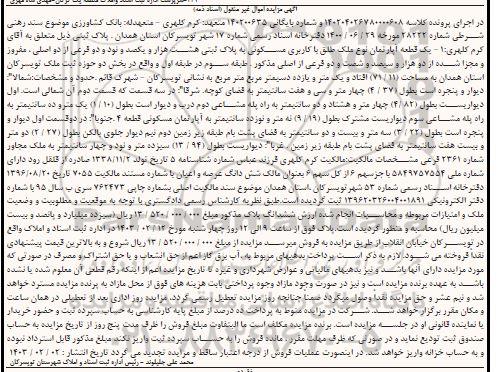 مزایده اموال غیر منقول (اسناد ذمه)
در اجرای پرونده کلاسه
و شماره بایگانی ۱۴۰۲۰۰۶۳۵ متعهد: کرم کلهری - متعهدله: بانک کشاورزی موضوع سند رهنی
شرطی شماره ۲۸۲۲۲ مورخه ۱۴۰۰/۰۶/۲۹ دفترخانه اسناد رسمی شماره ۱۷ شهر تویسرکان استان همدان . پلاک ثبتی ذیل متعلق به آقای
کرم کلهری: ۱ - یک قطعه آپارتمان نوع ملک طلق با کاربری مسکونی به پلاک ثبتی هشت هزار و یکصد و نود و دو فرعی از دو اصلی ، مفروز
و مجزا شده از دو هزار و سیصد و شصت و دو فرعی از اصلی مذکور . طبقه سوم در طبقه اول و واقع در بخش دو حوزه ثبت ملک تویسرکان
استان همدان به مساحت (۷۱/۱۱) هفتاد و یک متر و یازده دسیمتر مربع متر مربع به نشانی تویسرکان - شهرک قائم .حدود و مشخصات:شمالا:
دیوار و پنجره است بطول (۴/۳۷) چهار متر و سی و هفت سانتیمتر به فضای کوچه. شرقا: در سه قسمت که قسمت دوم آن شمالی است. اول
دیواریست بطول (۴/۸۲) چهار متر و هشتاد و دو سانتیمتر به راه پله مشاعی دوم درب و دیوار است بطول (۱/۱۰) یک متر و ده سانتیمتر به
راه پله مشاعی سوم دیواریست مشترک بطول (۹/۱۹) نه متر و نوزده سانتیمتر به آپارتمان مسکونی قطعه ۴ .جنوبا: دردوقسمت اول دیوار و
پنجره است بطول (۳/۲۲) سه متر و بیست و دو سانتیمتر به فضای پشت بام طبقه زیر زمین دوم نیم دیوار جلوی بالکن بطول (۲/۲۷) دو متر
و بیست هفت سانتیمتر به فضای پشت بام طبقه زیر زمین .غربا: دیواریست بطول (۱۳/۹۴) سیزده متر و نود و چهار سانتیمتر به ملک مجاور
شماره ۲۳۶۱ فرعی مشخصات مالکیت:مالکیت کرم کلهری فرزند عباس شماره شناسنامه ۵ تاریخ تولد ۱۳۳۸/۱۱/۲ صادره از قلقل رود دارای
شماره ملی ۵۸۴۹۷۵۷۵۵۴ با جزسهم ۶ از کل سهم ۶ بعنوان مالک شش دانگ عرصه و اعیان با شماره مستند مالکیت ۷۰۵۵ تاریخ ۱۳۹۶/۰۸/۲۰
دفترخانه اسناد رسمی شماره ۵۳ شهر تویسرکان .استان همدان موضوع سند مالکیت اصلی بشماره چاپی ۷۶۲۴۷۳ سری ب سال ۹۵ با شماره
دفتر الکترونیکی ثبت گردیده است.طبق نظریه کارشناس رسمی دادگستری با توجه به موقعیت و مطلوبیت و وضعیت
ملک و امتیازات مربوطه و محاسبات انجام شده ارزش ششدانگ پلاک مذکور مبلغ ۱۳/۵۲۰/۰۰۰/۰۰۰ ریال (سیزده میلیارد و پانصد و بیست
میلیون ریال) محاسبه و منظور گردیده است. پلاک فوق از ساعت ۹ الی ۱۲ روز چهار شنبه مورخ ۱۴۰۳/۰۲/۱۲ در اداره ثبت اسناد و املاک واقع
در تویسرکان خیابان انقلاب از طریق مزایده به فروش میرسد.مزایده از مبلغ ۱۳/۵۲۰/۰۰۰/۰۰۰ ریال شروع و به بالاترین قیمت پیشنهادی
نقدا فروخته می شود. لازم به ذکر است پرداخت بدهیهای مربوط به آب برق گاز اعم از حق انشعاب و یا حق اشتراک و مصرف در صورتی که
مورد مزایده دارای آنها باشد و نیز بدهیهای مالیاتی و عوارض شهرداری و غیره تا تاریخ مزایده اعم از اینکه رقم قطعی آن معلوم شده یا نشده
باشد به عهده برنده مزایده است و نیز در صورت وجود مازاد وجوه پرداختی بابت هزینه های فوق از محل مازاد به برنده مزایده مسترد خواهد
شد و نیم عشر و حق مزایده نقدا وصول میگردد ضمنا چنانچه روز مزایده تعطیل رسمی گردد، مزایده روز اداری بعد از تعطیلی در همان ساعت
و مکان مقرر برگزار خواهد شد. شرکت در مزایده منوط به پرداخت ده درصد از مبلغ پایه کارشناسی به حساب سپرده ثبت و حضور خریدار
یا نماینده قانونی او در جلسه مزایده است. برنده مزایده مکلف است مابه التفاوت مبلغ فروش را ظرف مدت پنج روز از تاریخ مزایده به حساب
صندوق ثبت تودیع نماید و در صورتی که ظرف مهلت مقرر، مانده فروش را به حساب سپرده ثبت واریز نکند مبلغ مذکور قابل استرداد نبوده
و به حساب خزانه واریز خواهد شد. در اینصورت عملیات فروش از درجه اعتبار ساقط و مزایده تجدید می گردد تاریخ انتشار : ۱۴۰۳/۰۲/۰۲
محمد علی جلیلوند - رئیس اداره ثبت اسناد و املاک شهرستان تویسرکان